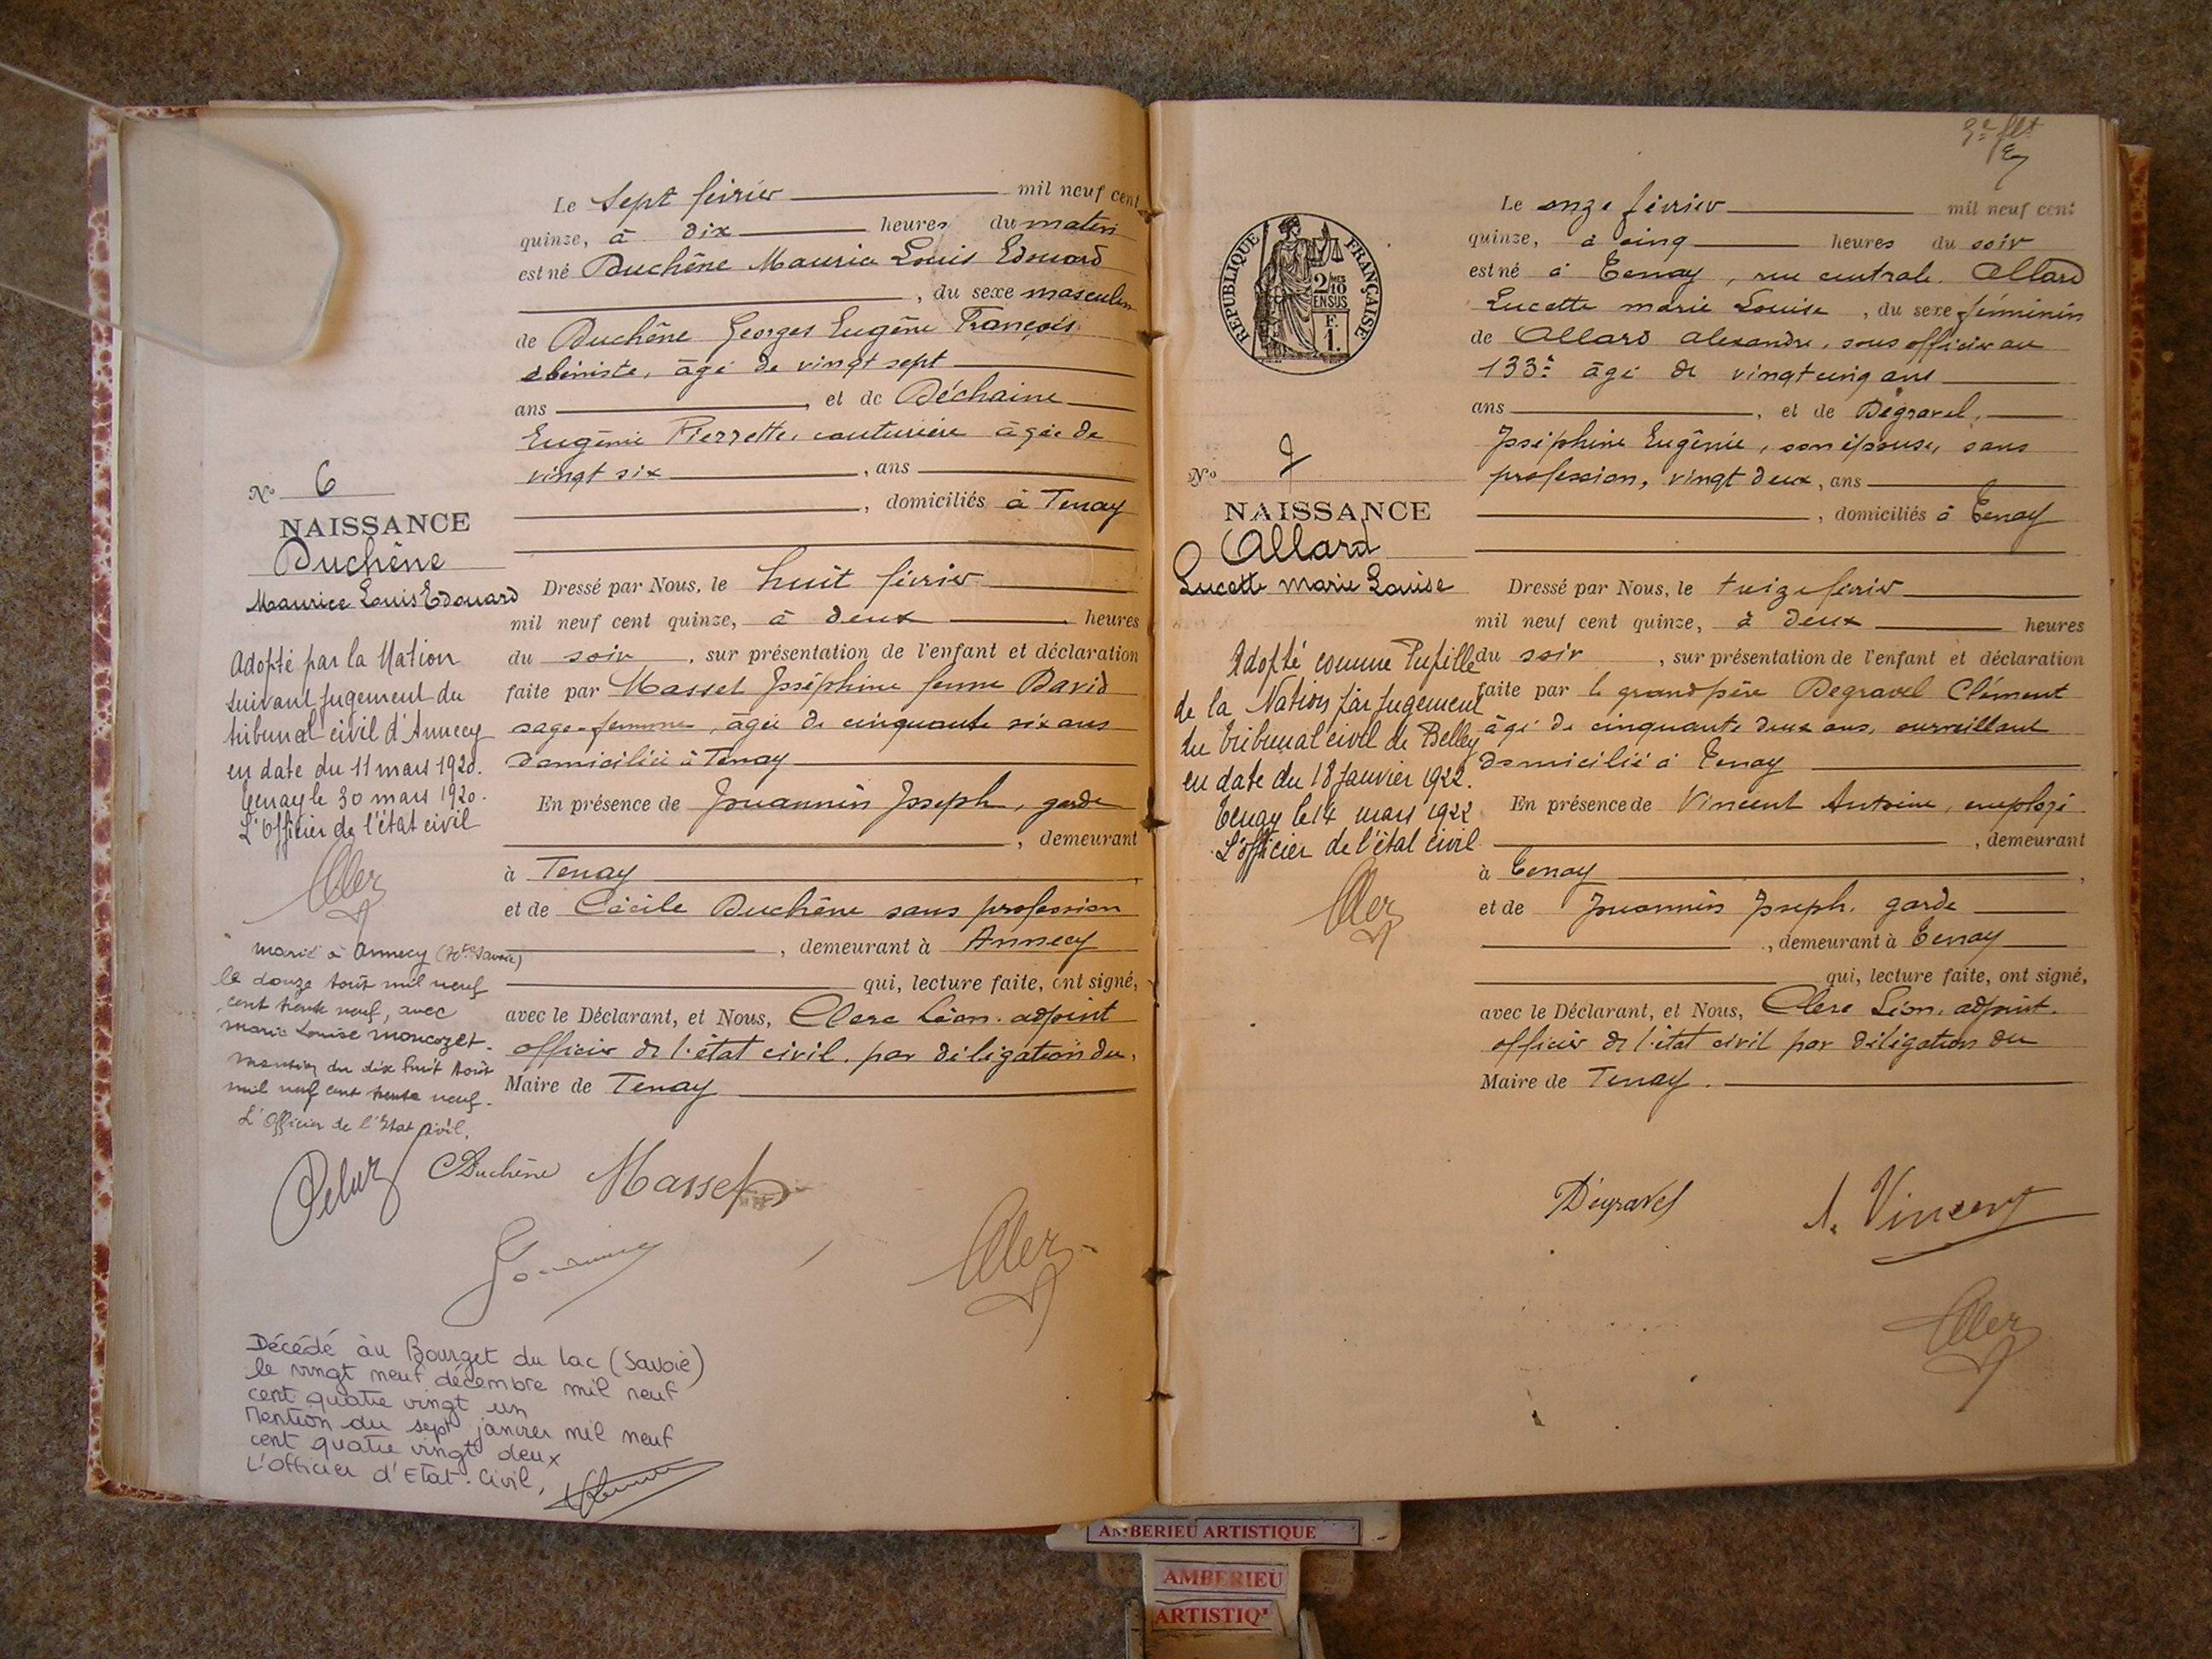 Le sept février mil neuf cent
quinze, à dix heures du matin
est né Duchêne Maurice Louis Edouard
, du sexe masculin
de Duchêne Georges Eugène François
ébéniste, âgé de vingt sept
ans , et de Déchaine
Eugénie Pierrette, couturière âgée de
vingt six , ans
, domiciliés à Tenay
N° 6
NAISSANCE
Duchêne
Maurice Louis Edouard
Adopté par la Nation
suivant jugement du
tribunal civil d'Annecy
en date du 11 mars 1920.
Tenay le 30 mars 1920.
L'Officier de l'état civil
Clerc
Marié à Annecy (Hte Savoie)
le douze août mil neuf
cent trente neuf, avec
Marie Louise Moncozet.
Mention du dix huit août
mil neuf cent trente neuf.
L'Officier de l'Etat civil,
Dressé par Nous, le huit février
mil neuf cent quinze, à deux heures
du soir , sur présentation de l'enfant et déclaration
faite par Masset Joséphine femme David
sage-femme, âgée de cinquante six ans
domiciliée à Tenay
En présence de Jouannin Joseph, garde
, demeurant
à Tenay
et de Cécile Duchêne sans profession
, demeurant à Annecy
qui, lecture faite, ont signé,
avec le Déclarant, et Nous, Clerc Léon. adjoint
officier de l'état civil. par délégation du,
Maire de Tenay
CDuchêne Masset
Clerc
Décédé au Bourget du Lac (Savoie)
le vingt neuf décembre mil neuf
cent quatre vingt un
Mention du sept janvier mil neuf
cent quatre vingt deux
L'Officier d'Etat-Civil,
RÉPUBLIQUE FRANÇAISE
2/10
EN SUS
F.
1.
Le onze février mil neuf cent
quinze, à cinq heures du soir
est né à Tenay, rue centrale. Allard
Lucette Marie Louise , du sexe féminin
de Allard Alexandre, sous officier au
133e âgé de vingt cinq ans
ans , et de Dégravel,
Joséphine Eugénie, son épouse, sans
profession, vingt deux, ans
, domiciliés à Tenay
N° 7
NAISSANCE
Allard
Lucette Marie Louise
Adopté comme Pupille
de la Nation par jugement
du tribunal civil de Belley
en date du 18 janvier 1922.
Tenay le 14 mars 1922
L'officier de l'état civil
Clerc
Dressé par Nous, le treize février
mil neuf cent quinze, à deux heures
du soir , sur présentation de l'enfant et déclaration
faite par le grand père Dégravel Clément
âgé de cinquante deux ans, surveillant
domicilié à Tenay
En présence de Vincent Antoine, employé
, demeurant
à Tenay
et de Jouannin Joseph. garde
, demeurant à Tenay
qui, lecture faite, ont signé,
avec le Déclarant, et Nous, Clerc Léon. adjoint.
officier de l'état civil par délégation du
Maire de Tenay.
Dégravel A. Vincent
Clerc
AMBERIEU ARTISTIQUE
AMBERIEU
ARTISTIQ